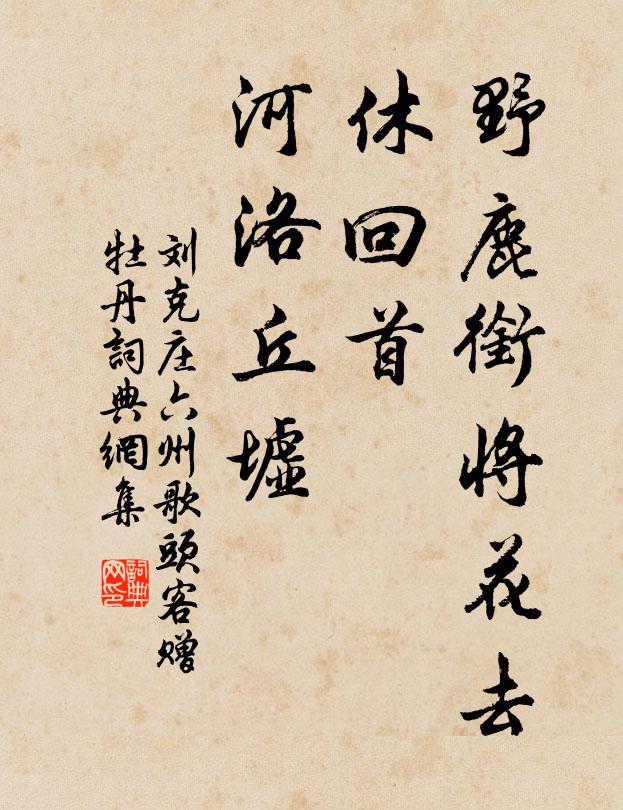 野鹿銜將花去
休回首
河洛丘墟
刘克庄六州歌頭客赠
牡丹詞典網集
詞典网印